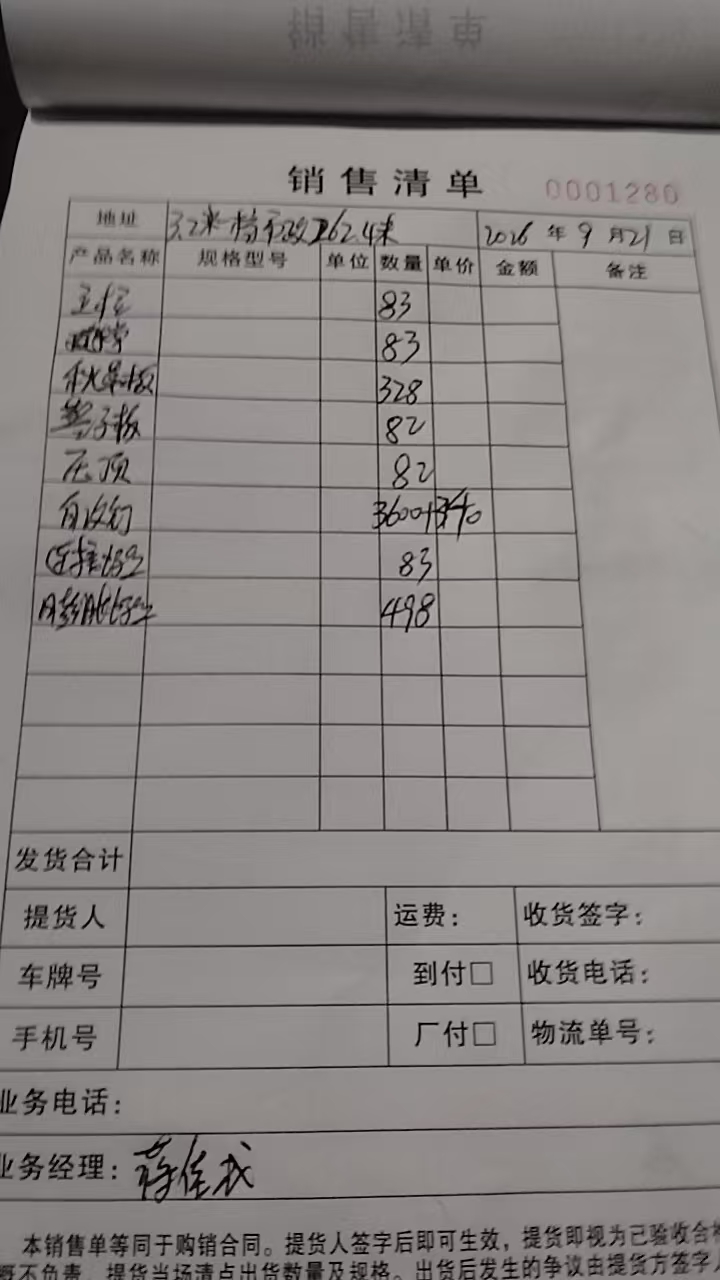 销售清单 0001280
地址 3.2米 262.4米 2026年9月21日
产品名称 规格型号 单位 数量 单价 金额 备注
立柱 83
83
328
82
压顶 82
自攻钉 3600+
83
膨胀 498
发货合计
提货人 运费： 收货签字：
车牌号 到付□ 收货电话：
手机号 厂付□ 物流单号：
业务电话：
业务经理：蒋佳
本销售单等同于购销合同。提货人签字后即可生效，提货即视为已验收合格
概不负责，提货当场清点出货数量及规格。出货后发生的争议由提货方签字